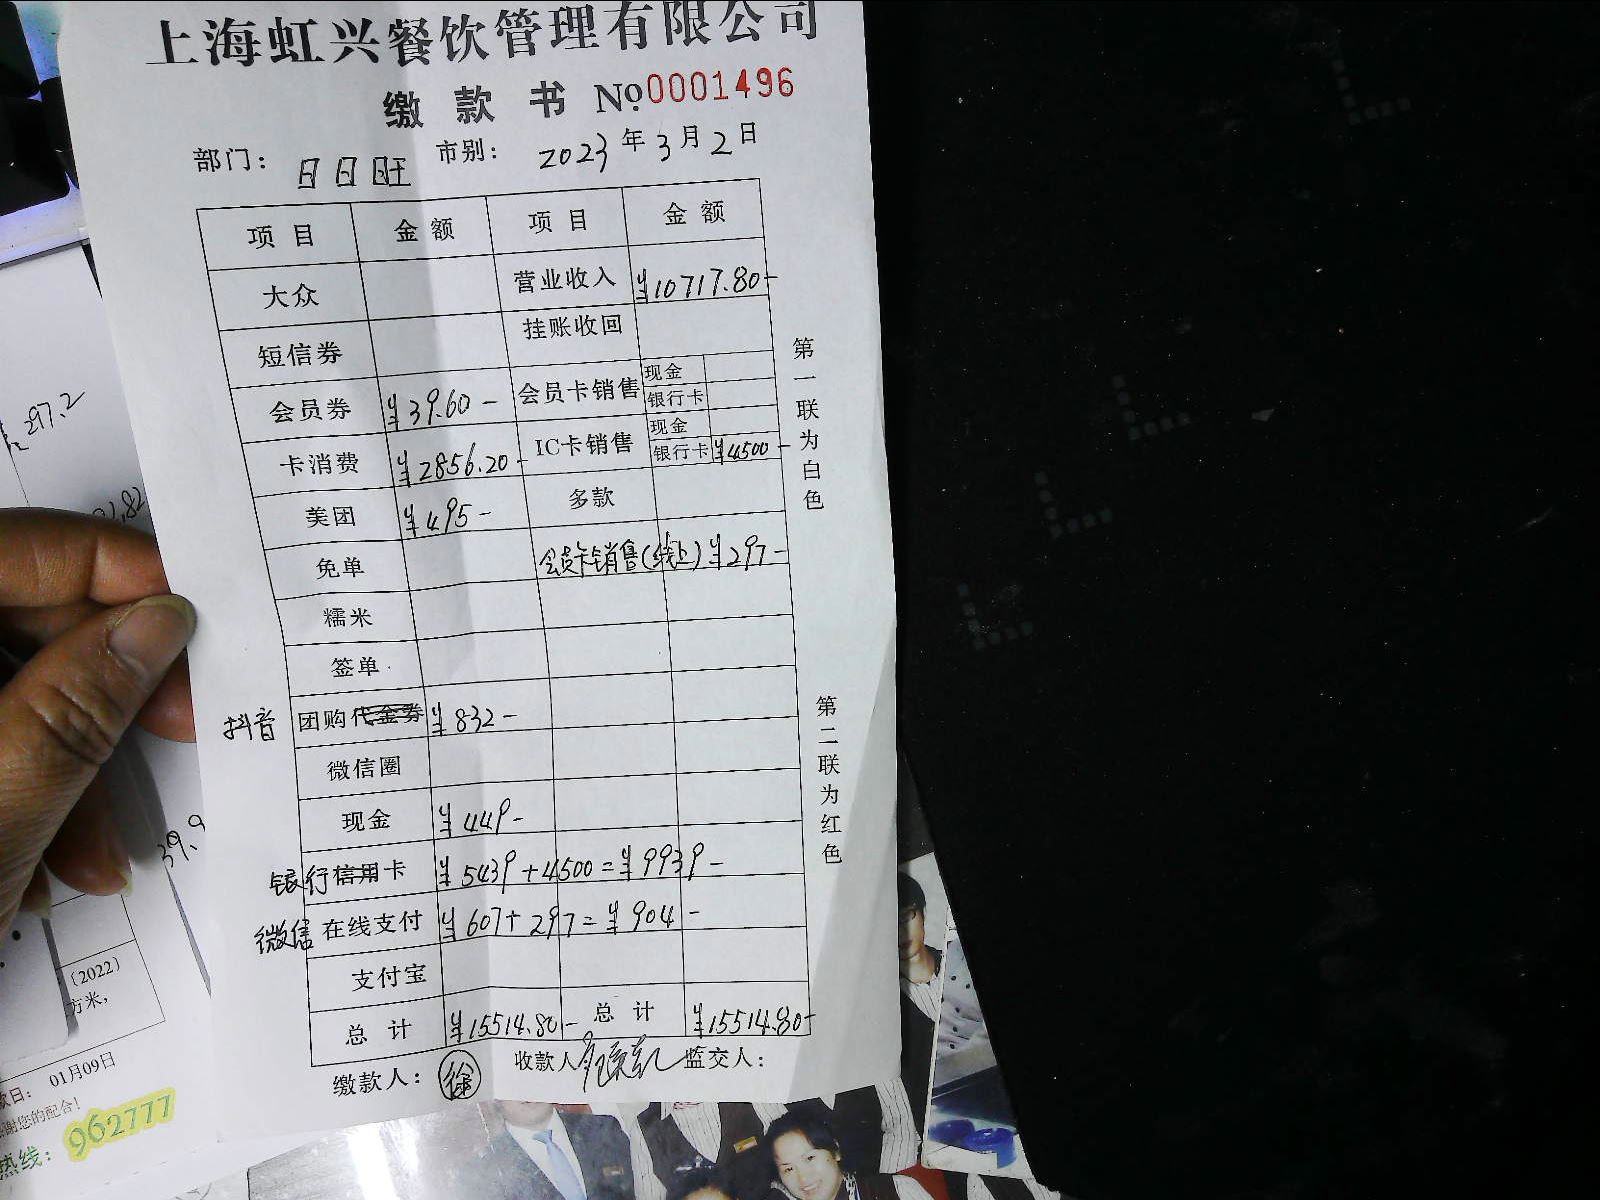 上海虹兴餐饮管理有限公司
缴款书 No 0001496
部门: 日日旺 市别: 2023年3月2日
项目 金额 项目 金额
大众 营业收入 ¥10717.80-
短信券 挂账收回
会员券 ¥39.60- 会员卡销售 现金
银行卡
卡消费 ¥2856.20- IC卡销售 现金
银行卡 ¥4500-
美团 ¥495- 多款
免单 会员卡销售(线上) ¥297-
糯米
签单
抖音 团购代金券 ¥832-
微信圈
现金 ¥449-
银行信用卡 ¥5439+4500=¥9939-
微信 在线支付 ¥607+297=¥904-
支付宝
总计 ¥15514.80- 总计 ¥15514.80-
缴款人: 徐 收款人 监交人:
第一联为白色
第二联为红色
297.2
39.9
(2022)
方米,
款日: 01月09日
谢您的配合!
热线: 962777